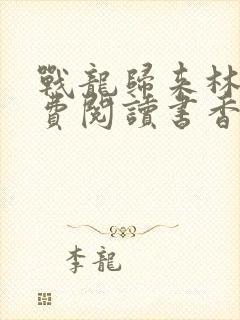 戰龍歸来林
費閱讀書香
李龍